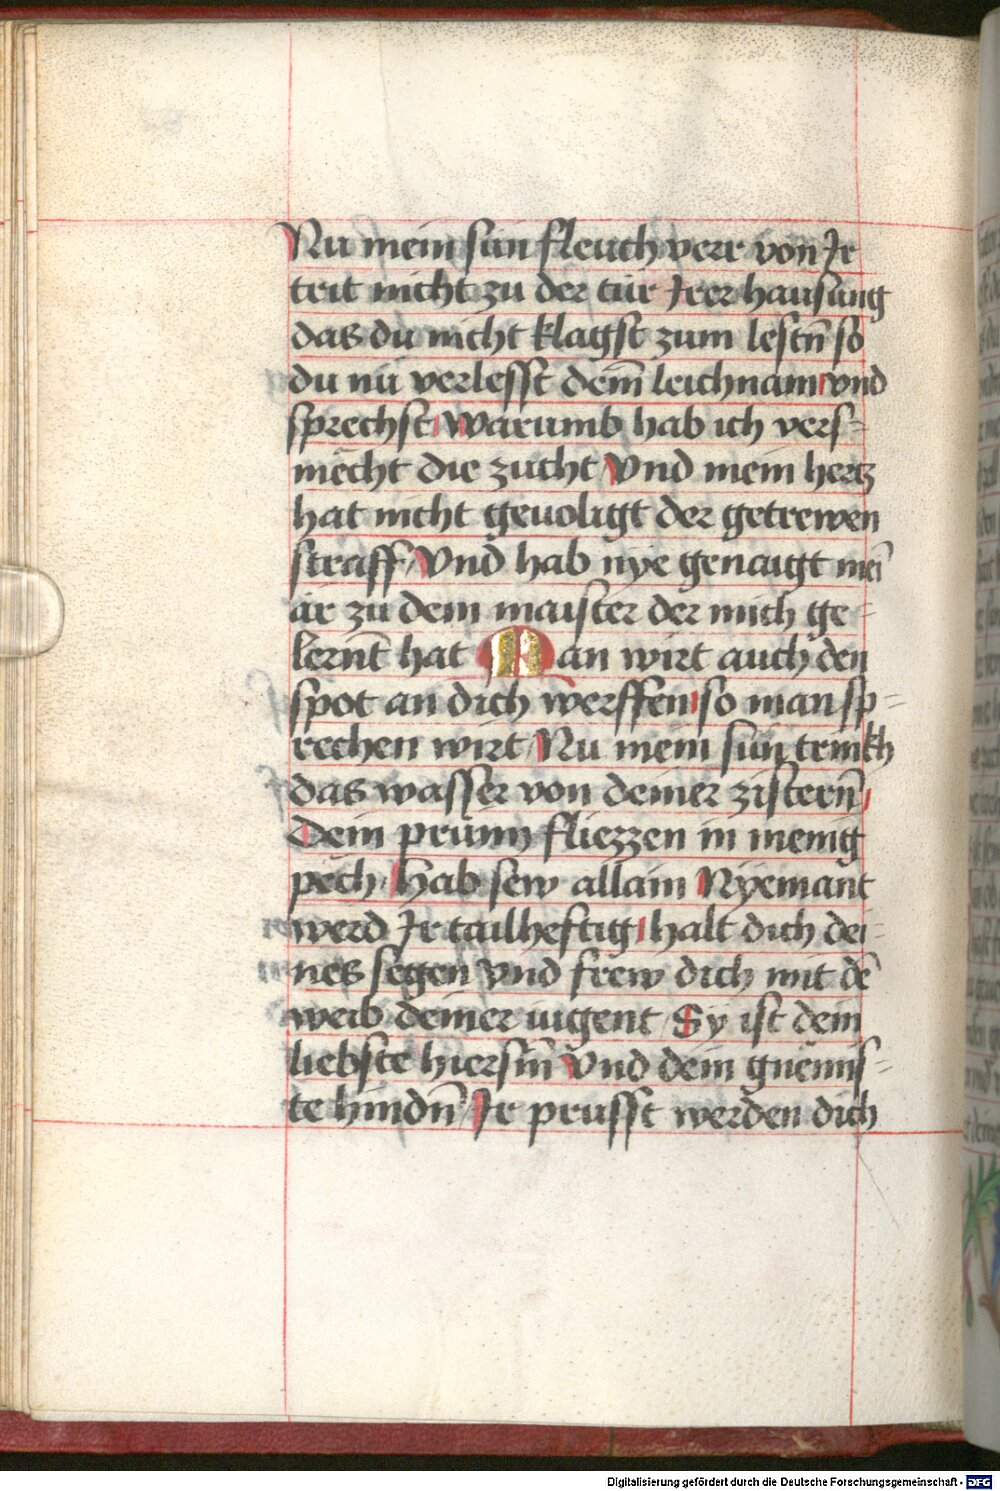 Nu mein sün fleuch verr von Ir
trit nicht zu der tür Irer hausung
das du nicht klagst zum lestn̄ so
du nü verlesst dein̄ leichnam vnd
sprechst Warumb hab ich vers=
mëcht die zucht Vnd mein hertz
hat nicht geuoligt der getrewen
straff Vnd hab nye genaigt mei̅
ar zu dem maister der mich ge=
lernt̄ hat Man wirt auch den
spot an dich werffen so man sp=
rechen wirt Nu mein sun trinkh
das wasser von deiner zistern̄
Dein prünn fliezzen in menig
pëch Hab sew allain Nyemant
werd Ir tailheftig halt dich dei=
nes segen Vnd frew dich mit dē
weib deiner iugent Sy ist dein
liebste hiersin̄ Vnd dein gnëmis=
te hindn̄ Ir prüsst werden dich
Digitalisierung gefördert durch die Deutsche Forschungsgemeinschaft - DFG